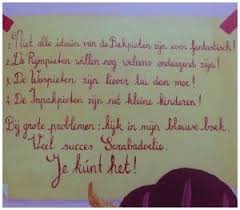 1. Niet alle ideeën van de Bakpieten zijn even fantastisch!
2. De Rympieten willen nog weleens ondeugend zijn!
3. De Wespieten zijn liever lui dan moe!
4. De Inpakpieten zijn net kleine kinderen!
Bij grote problemen: kijk in mijn blauwe boek.
Veel succes Scrabadoelie.
Je kúnt het!